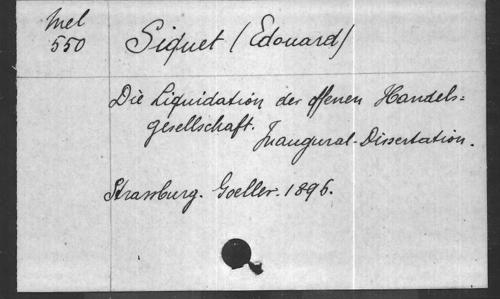 Mel
550
Siquet (Edouard)
Die Liquidation der offenen Handels-
gesellschaft. Inaugural-Dissertation.
Strassburg. Goeller. 1896.